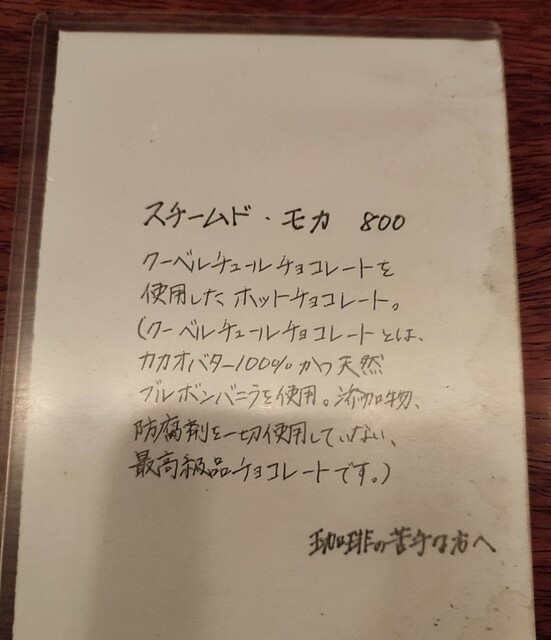 スチームド・モカ 800
クーベルチュールチョコレートを
使用したホットチョコレート。
(クーベルチュールチョコレートとは、
カカオバター100%かつ天然
ブルボンバニラを使用。添加物、
防腐剤を一切使用していない、
最高級品チョコレートです。)
珈琲の苦手な方へ